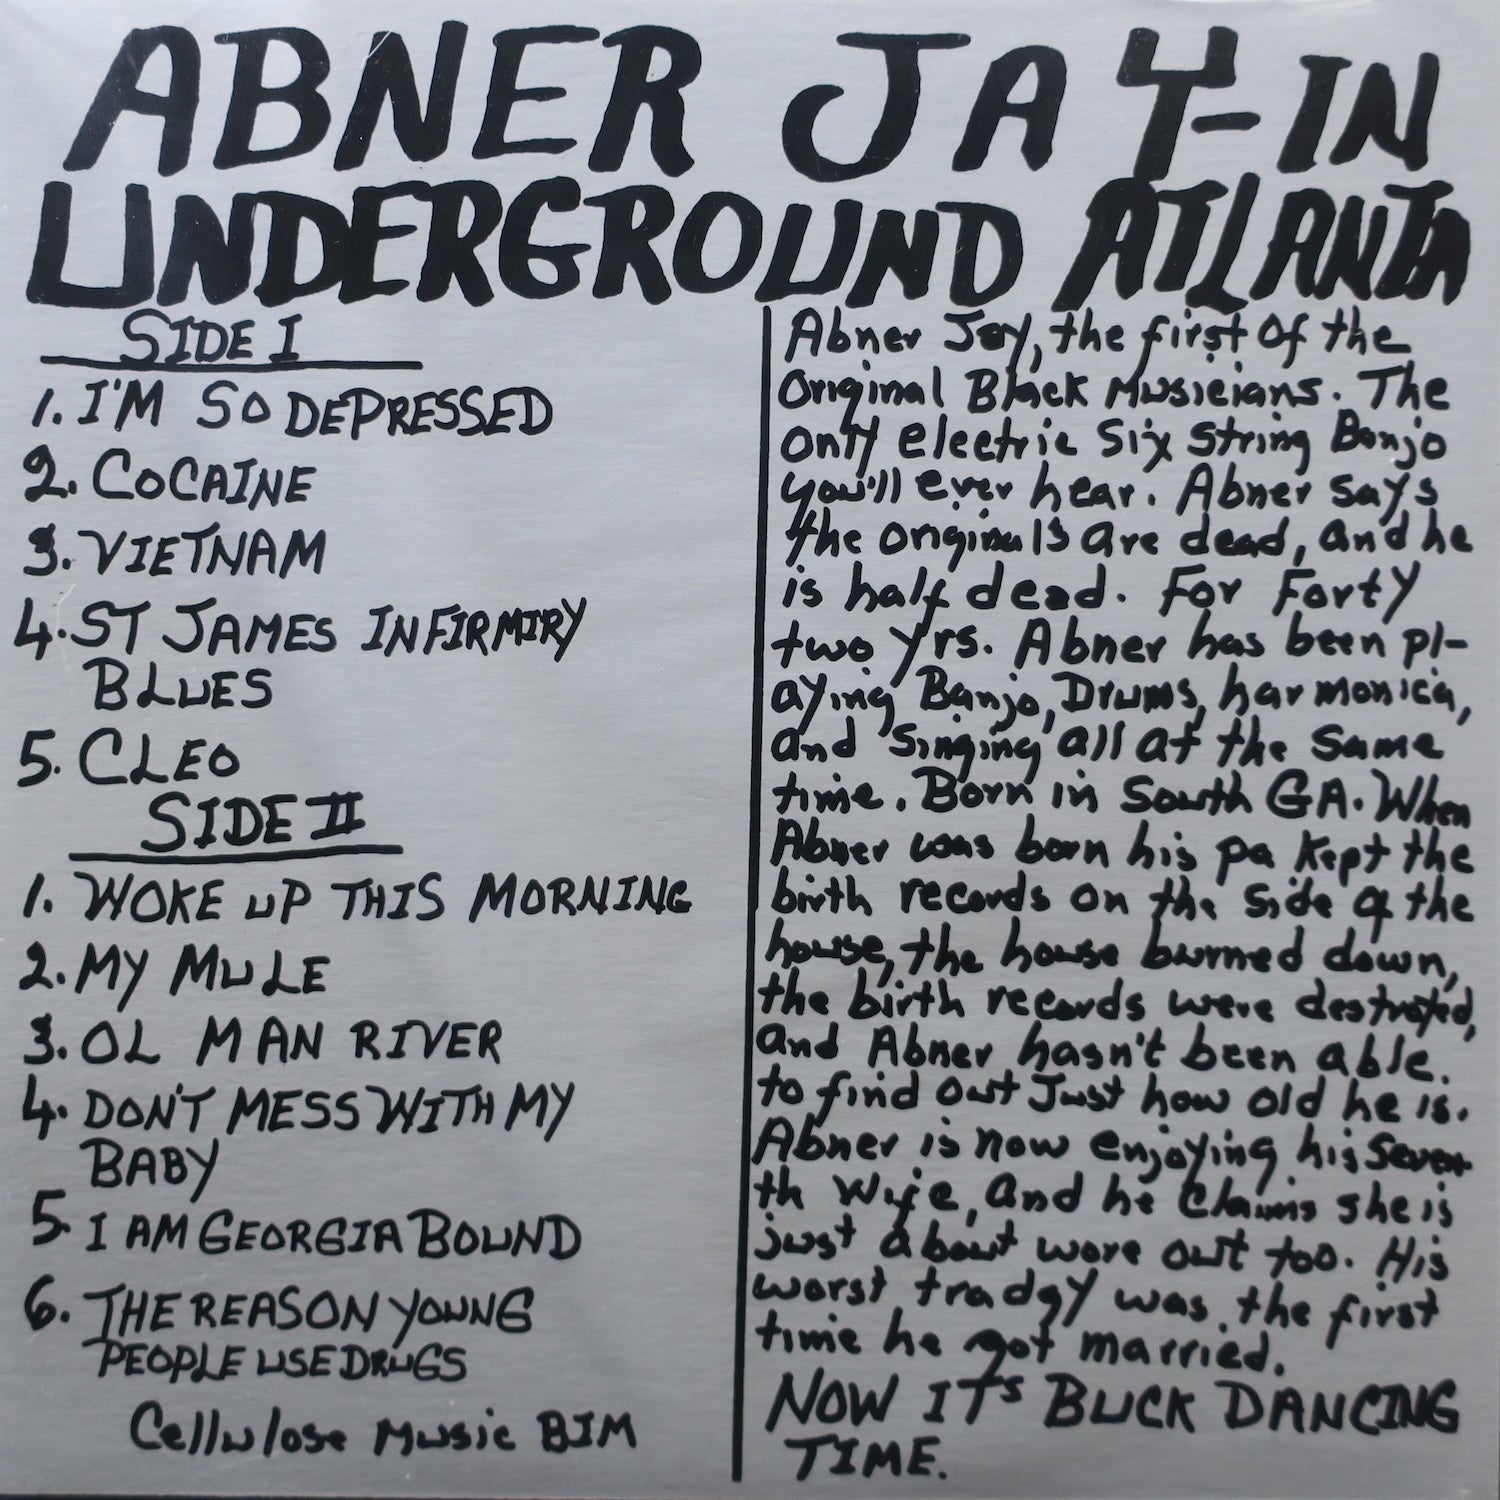 ABNER JAY-IN
UNDERGROUND ATLANTA
SIDE I
1. I'M SO DEPRESSED
2. COCAINE
3. VIETNAM
4. ST JAMES INFIRMIRY
BLUES
5. CLEO
SIDE II
1. WOKE UP THIS MORNING
2. MY MULE
3. OL MAN RIVER
4. DON'T MESS WITH MY
BABY
5. I AM GEORGIA BOUND
6. THE REASON YOUNG
PEOPLE USE DRUGS
Cellulose Music BIM
Abner Jay, the first of the
Original Black Musicians. The
only electric Six String Banjo
you'll ever hear. Abner says
the originals are dead, and he
is half dead. For Forty
two yrs. Abner has been pl-
aying Banjo, Drums, harmonica,
and singing all at the same
time. Born in South GA. When
Abner was born his pa kept the
birth records on the side of the
house, the house burned down,
the birth records were destroyed,
and Abner hasn't been able.
to find out Just how old he is.
Abner is now enjoying his seven-
th wife, and he claims she is
just about wore out too. His
worst tradgy was the first
time he got married.
NOW IT'S BUCK DANCING
TIME.